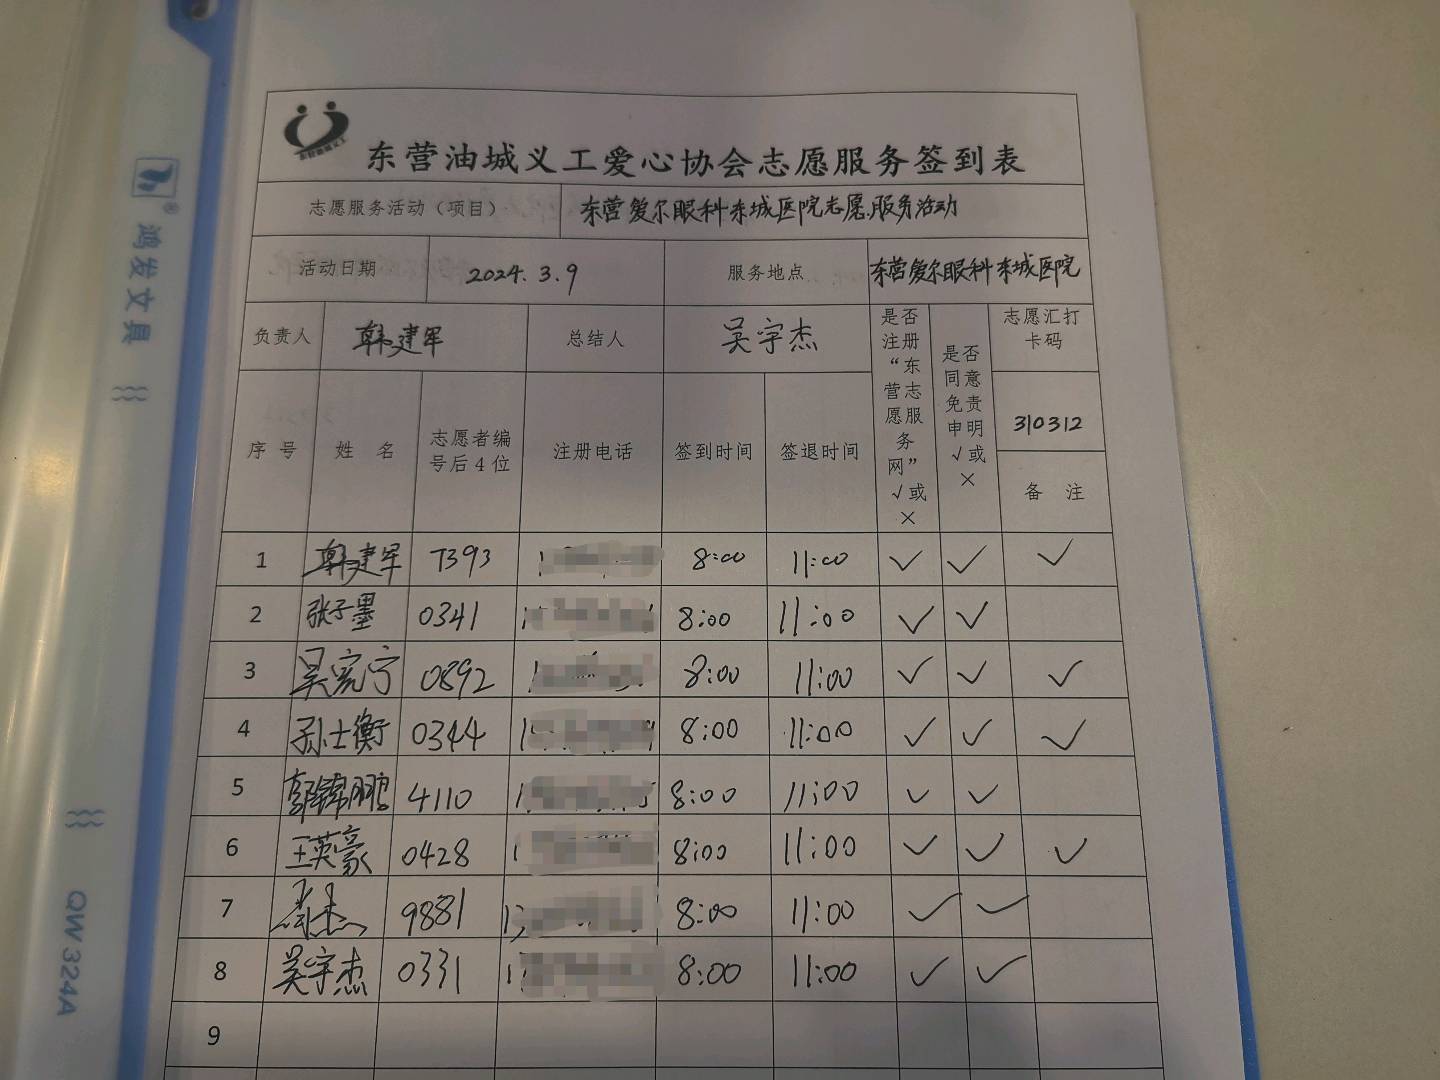 东营油城义工爱心协会志愿服务签到表
志愿服务活动（项目） 东营爱尔眼科东城医院志愿服务活动
活动日期 2024.3.9 服务地点 东营爱尔眼科东城医院
负责人 韩建军 总结人 吴宇杰 是否注册“东营志愿服务网”√或× 是否同意免责申明√或× 志愿汇打卡码
310312
序号 姓名 志愿者编号后4位 注册电话 签到时间 签退时间 备注
1 韩建军 7393 8:00 11:00 ✓ ✓ ✓
2 张子墨 0341 8:00 11:00 ✓ ✓
3 吴宪宁 0892 8:00 11:00 ✓ ✓ ✓
4 孙士衡 0344 8:00 11:00 ✓ ✓ ✓
5 郭锦鹏 4110 8:00 11:00 ✓ ✓
6 王英豪 0428 8:00 11:00 ✓ ✓ ✓
7 9881 8:00 11:00 ✓ ✓
8 吴宇杰 0331 8:00 11:00 ✓ ✓
9
鸿发文具
®
QW324A